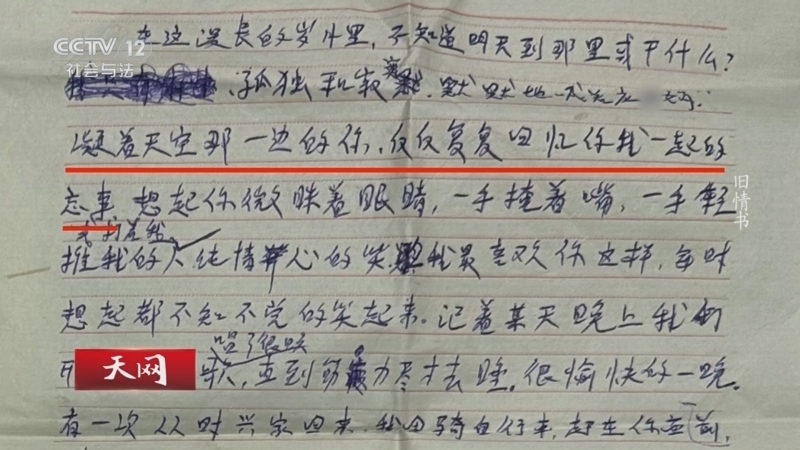 CCTV 12
社会与法
在这漫长的岁月里,不知道明天到那里或干什么?
孤独和寂寞,默默地
凝着天空那一边的你,反反复复回忆你我一起的
忘事 想起你微眯着眼睛,一手掩着嘴,一手轻
推我的 纯情 心的笑 我最喜欢你这样,每时
想起都不知不觉的笑起来。记着某天晚上我们
唱了很久
歌,直到筋疲力尽才去睡。很愉快的一晚。
有一次从时兴家回来,我因骑自行车,赶在你 前,
旧情书
天网